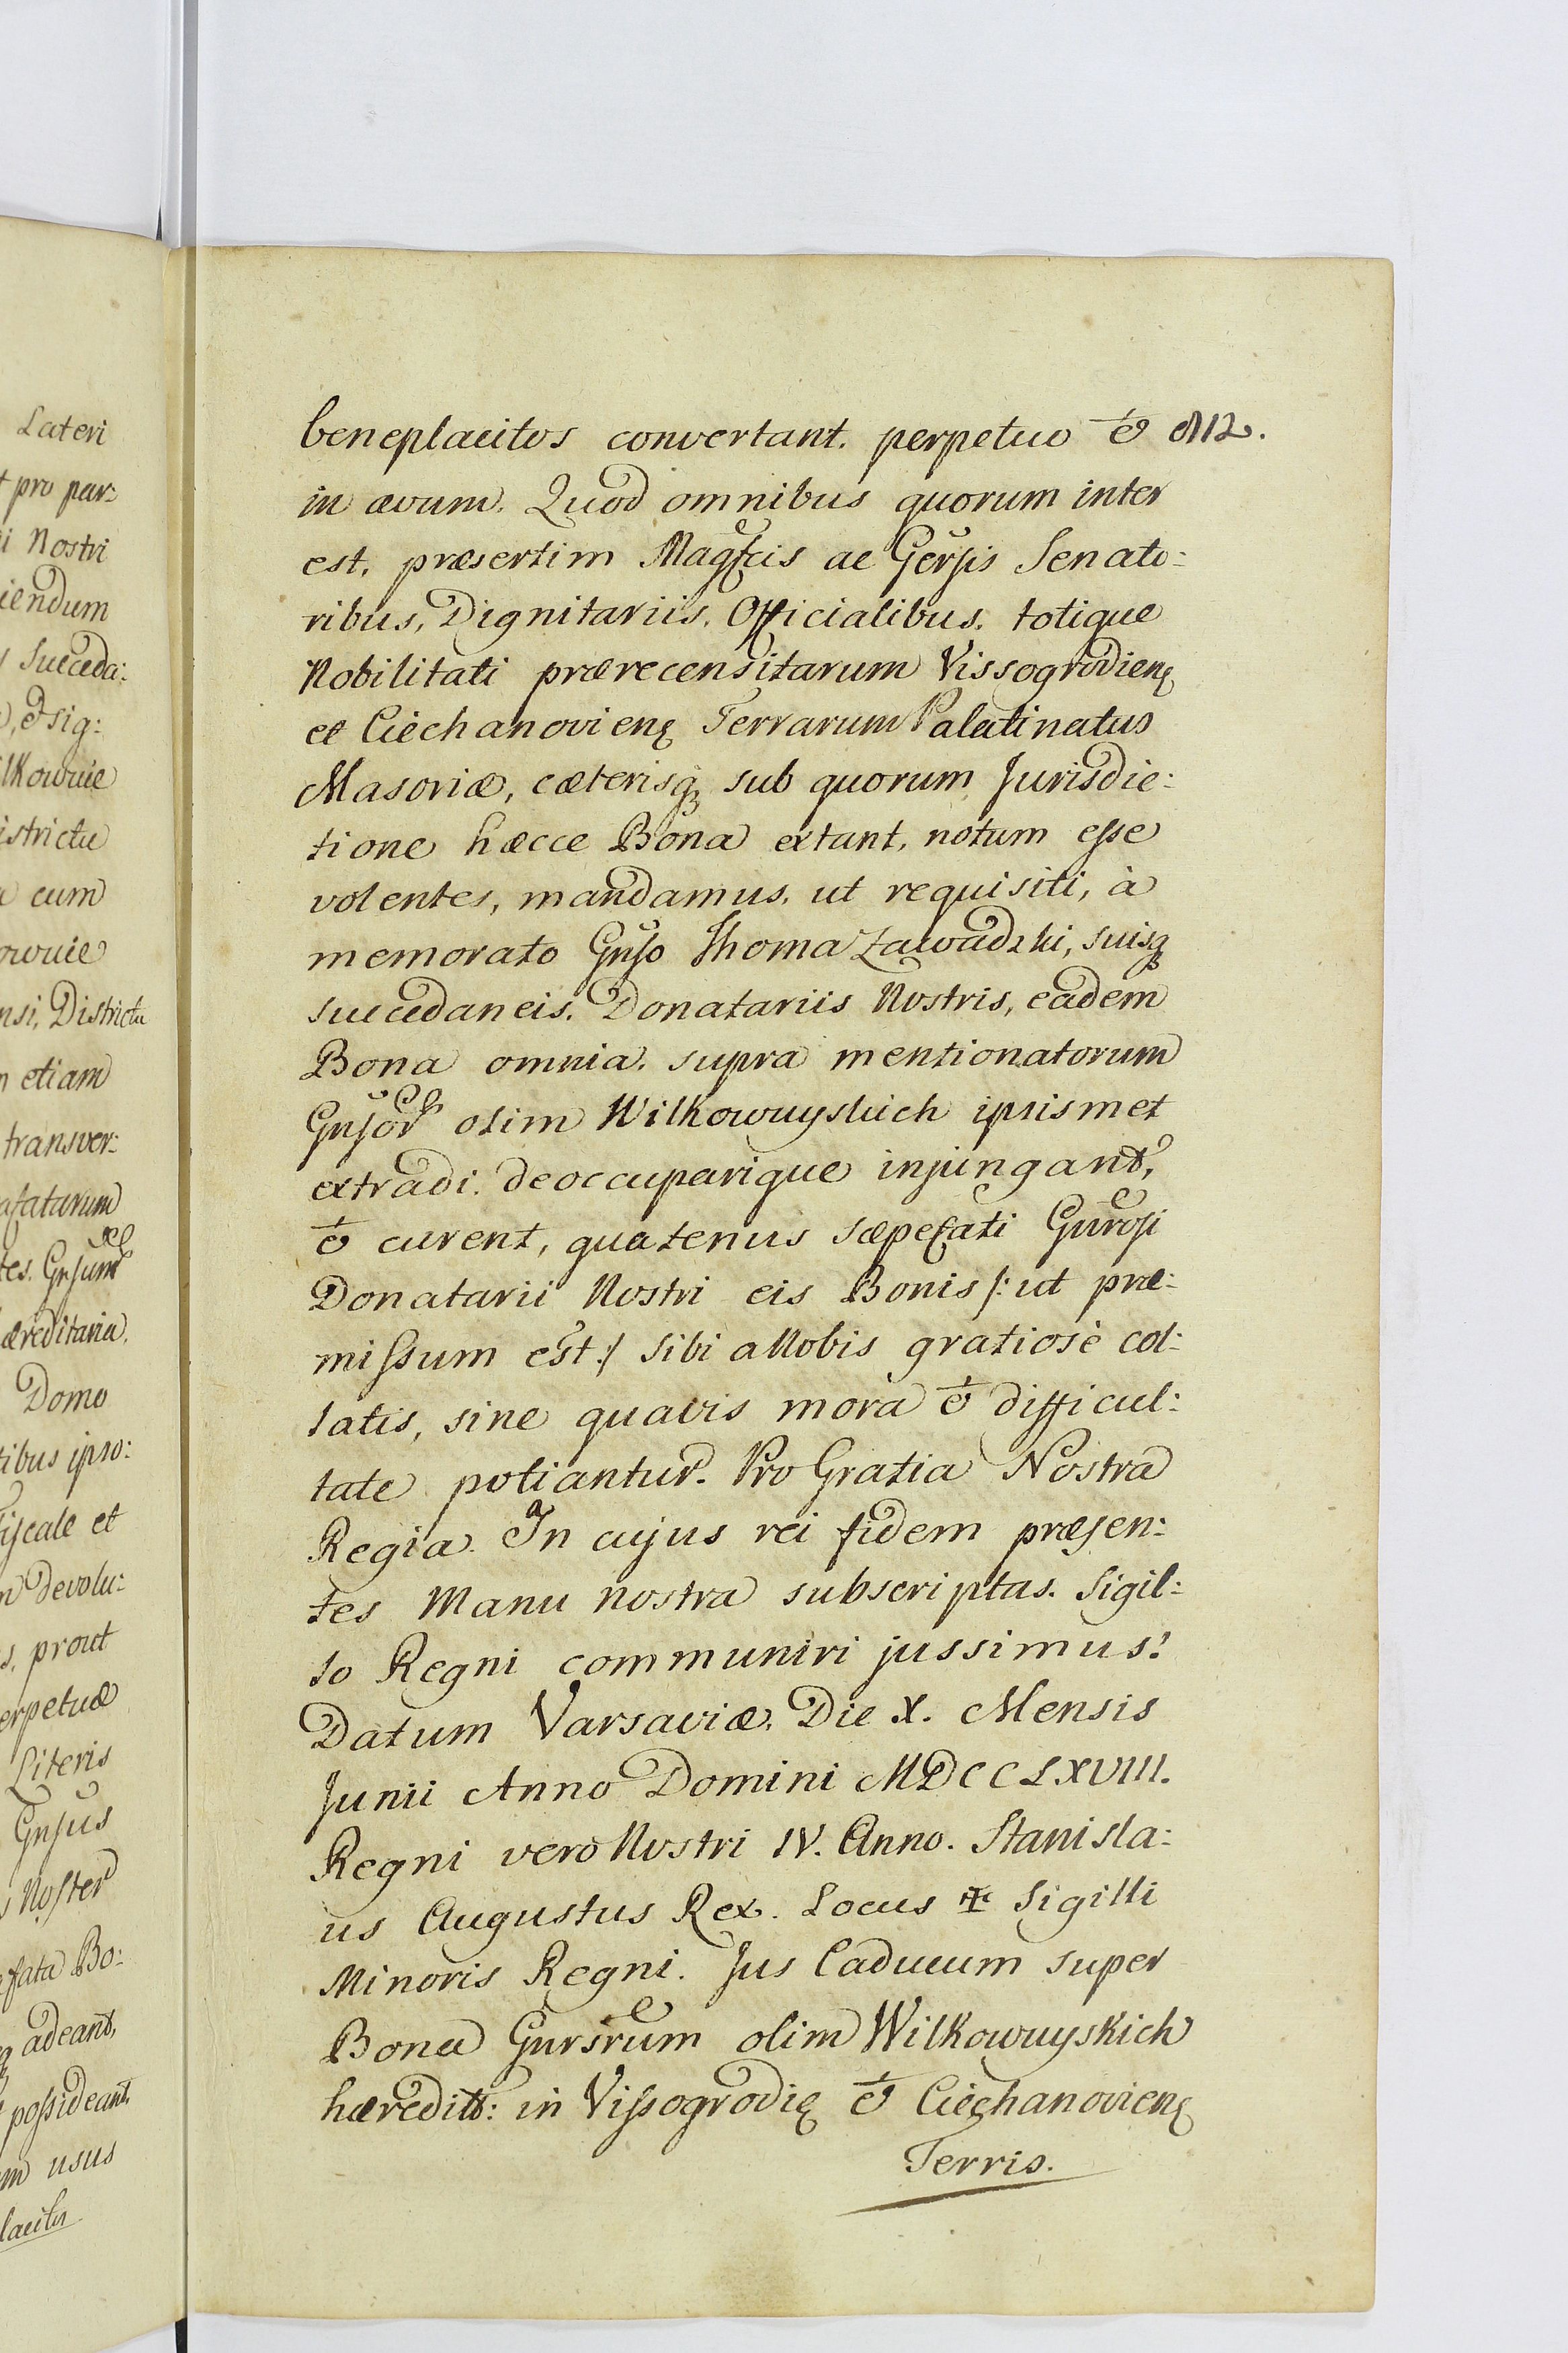 Lateri
pro par:
i Nostri
iendum
Succeda:
, et sig:
lkowuie
istrictu
cum
owuie
nsi, Districtu
etiam
transver:
afatarum
tes. Gnsum
æreditaria.
Domo
tibus ipso:
Fiscale et
Devolu:
s, prout
erpetuæ
Literis
Gnsus
Noster
efata Bo:
adeant,
possideant.
usus
lacitos
beneplacitos convertant. perpetuo et 812.
in ævum. Quod omnibus quorum inter
est, præsertim Magfcis ac Gersis Senato:
ribus, Dignitariis, Officialibus, totique
Nobilitati prærecensitarum Vissogrodienę
et Ciechanovienę Terrarum Palatinatus
Masoviæ, cæterisqȝ sub quorum Jurisdic:
tione hæcce Bona extant, notum esse
volentes, mandamus, ut requisiti, à
memorato Gnso Thoma Zawadzki, suisqȝ
succedaneis, Donatariis Nostris, eadem
Bona omnia, supra mentionatorum
Gnsor olim Wilkowuyskich ipsismet
extradi, deoccuparique injungant,
et curent, quatenus sæpefati Gnrosi
Donatarii Nostri eis Bonis /: ut præ:
missum est :/ sibi a Nobis gratiosè col:
latis, sine quavis mora et difficul:
tate potiantur. Pro Gratia Nostra
Regia. In cujus rei fidem præsen:
tes Manu nostra subscriptas. Sigil:
lo Regni communiri jussimus.
Datum Varsaviæ, Die X. Mensis
Junii Anno Domini MDCCLXVIII.
Regni vero Nostri IV. Anno. Stanisla:
us Augustus Rex. Locus ✠ Sigilli
Minoris Regni. Jus Caducum super
Bona Gnrsrum olim Wilkowuyskich
hæredit: in Vissogrodię et Ciechanovienę
Terris.